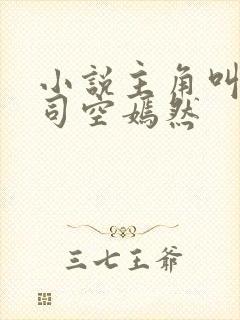 小说主角叫
司空嫣然
三七王爷